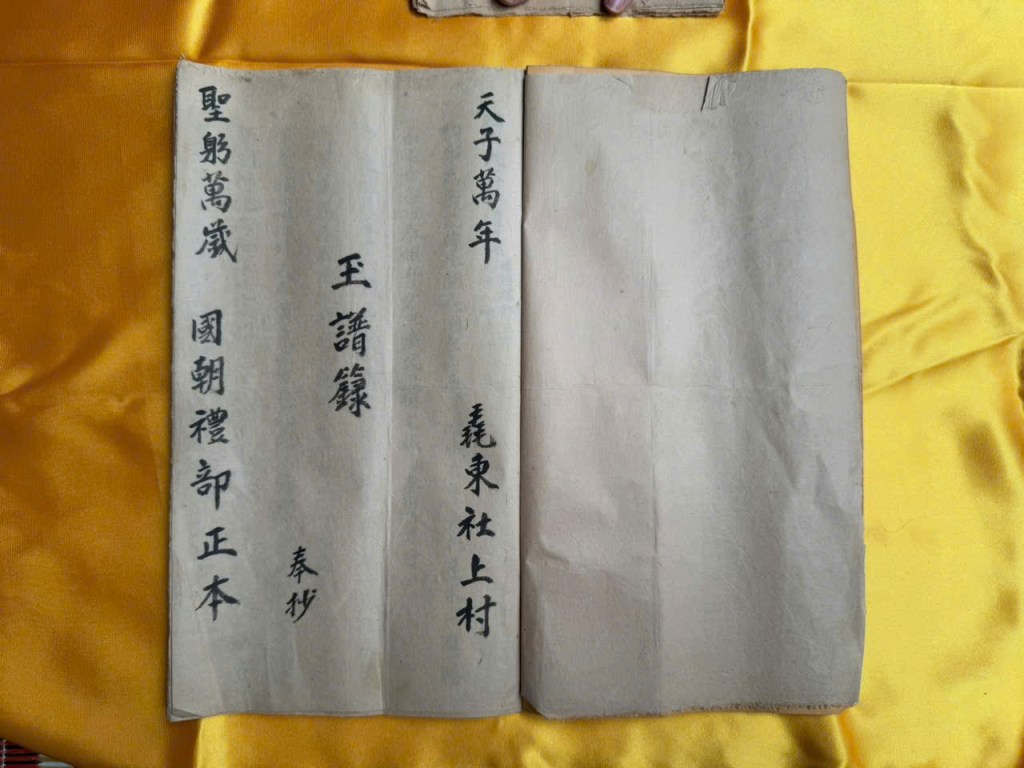 天子萬年
東社上村
玉譜籙
奉抄
聖躬萬歲
國朝禮部正本